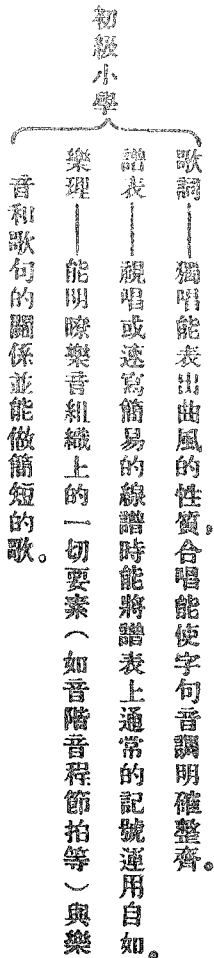 初級小學
歌詞——獨唱能表出曲風的性質，合唱能使字句音調明確整齊。
譜表——視唱或速寫簡易的線譜時能將譜表上通常的記號運用自如。
樂理——能明瞭樂音組織上的一切要素（如音階音程節拍等）與樂
音和歌句的關係並能做簡短的歌。